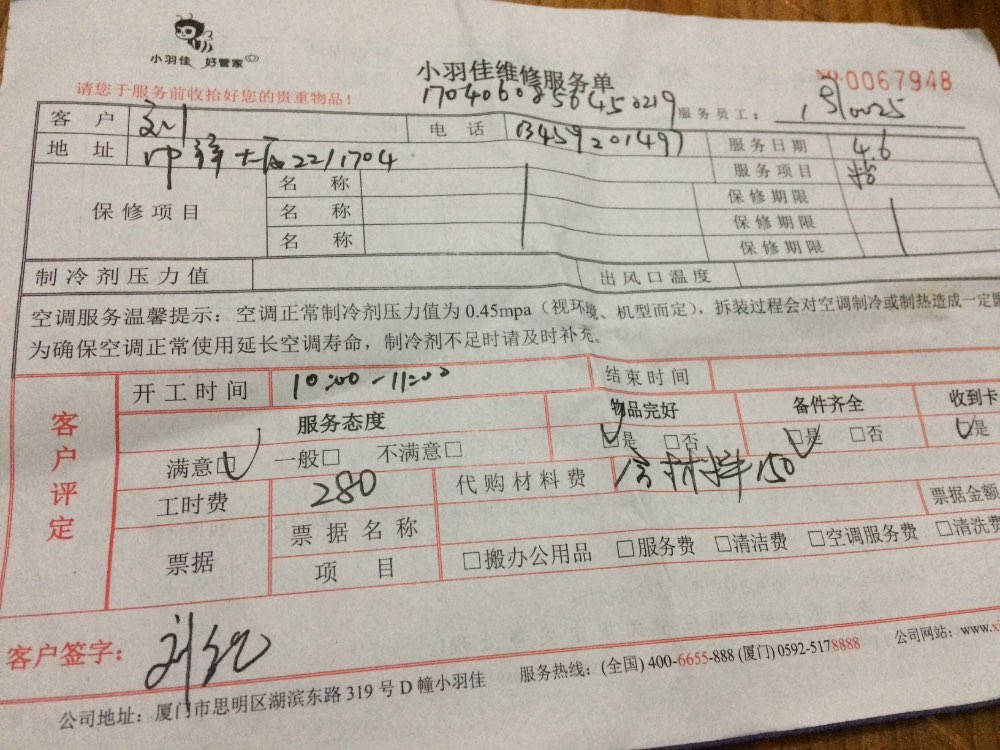 小羽佳 好管家
小羽佳维修服务单
No 0067948
请您于服务前收拾好您的贵重物品!
1704060856450219
服务员工:
客 户 刘 电 话 13459201497 服务日期 4.6
地 址 大厦22/1704 服务项目
保修项目 名 称 保修期限
名 称 保修期限
名 称 保修期限
制冷剂压力值 出风口温度
空调服务温馨提示:空调正常制冷剂压力值为 0.45mpa(视环境、机型而定),拆装过程会对空调制冷或制热造成一定
为确保空调正常使用延长空调寿命,制冷剂不足时请及时补充。
客户评定
开工时间 10:00-11:00 结束时间
服务态度 物品完好 备件齐全 收到卡
满意□ 一般□ 不满意□ □是 □否 □是 □否 □是
工时费 280 代购材料费 含材料 150
票据 票据名称 票据金额
项 目 □搬办公用品 □服务费 □清洁费 □空调服务费 □清洗费
客户签字:
公司地址:厦门市思明区湖滨东路 319 号 D 幢小羽佳 服务热线:(全国) 400-6655-888 (厦门) 0592-5178888 公司网站:www.xi